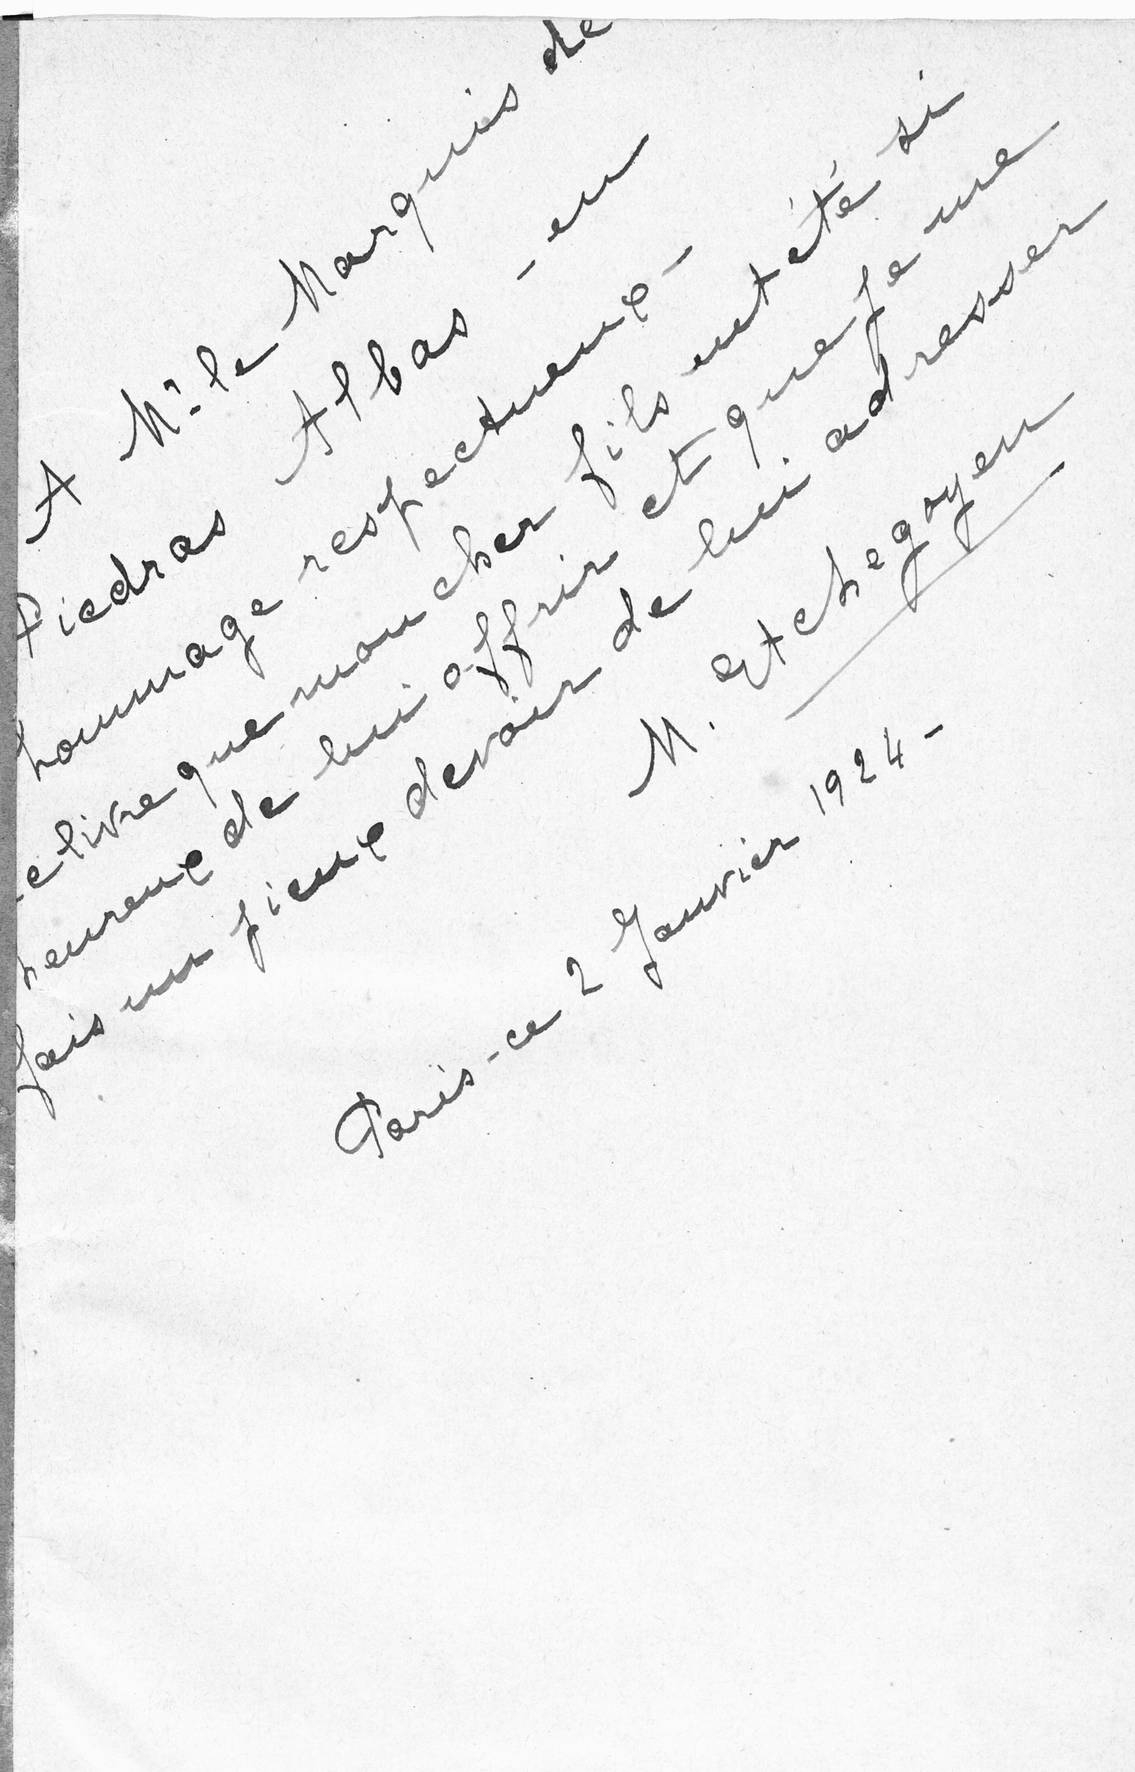 A Mr. le Marquis de
Piedras Albas - en
hommage respectueux -
ce livre que mon cher fils eut été si
heureux de lui offrir et que je me
fais un pieux devoir de lui adresser
M. Etchegoyen
Paris - ce 2 Janvier 1924 -